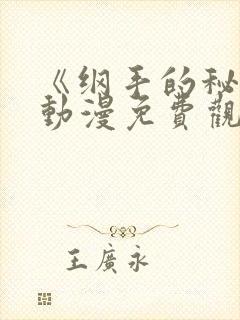 《纲手的秘
動漫免費觀
王廣永